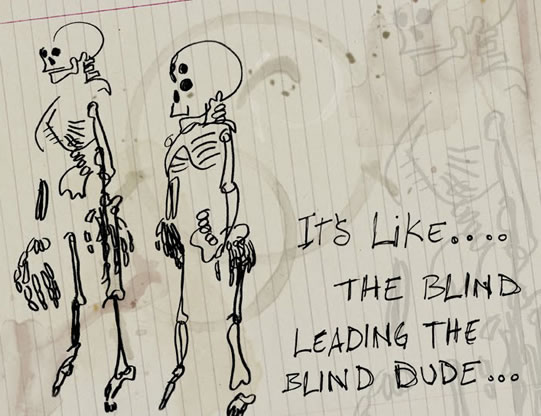 It's Like....
THE BLIND
LEADING THE
BLIND DUDE...